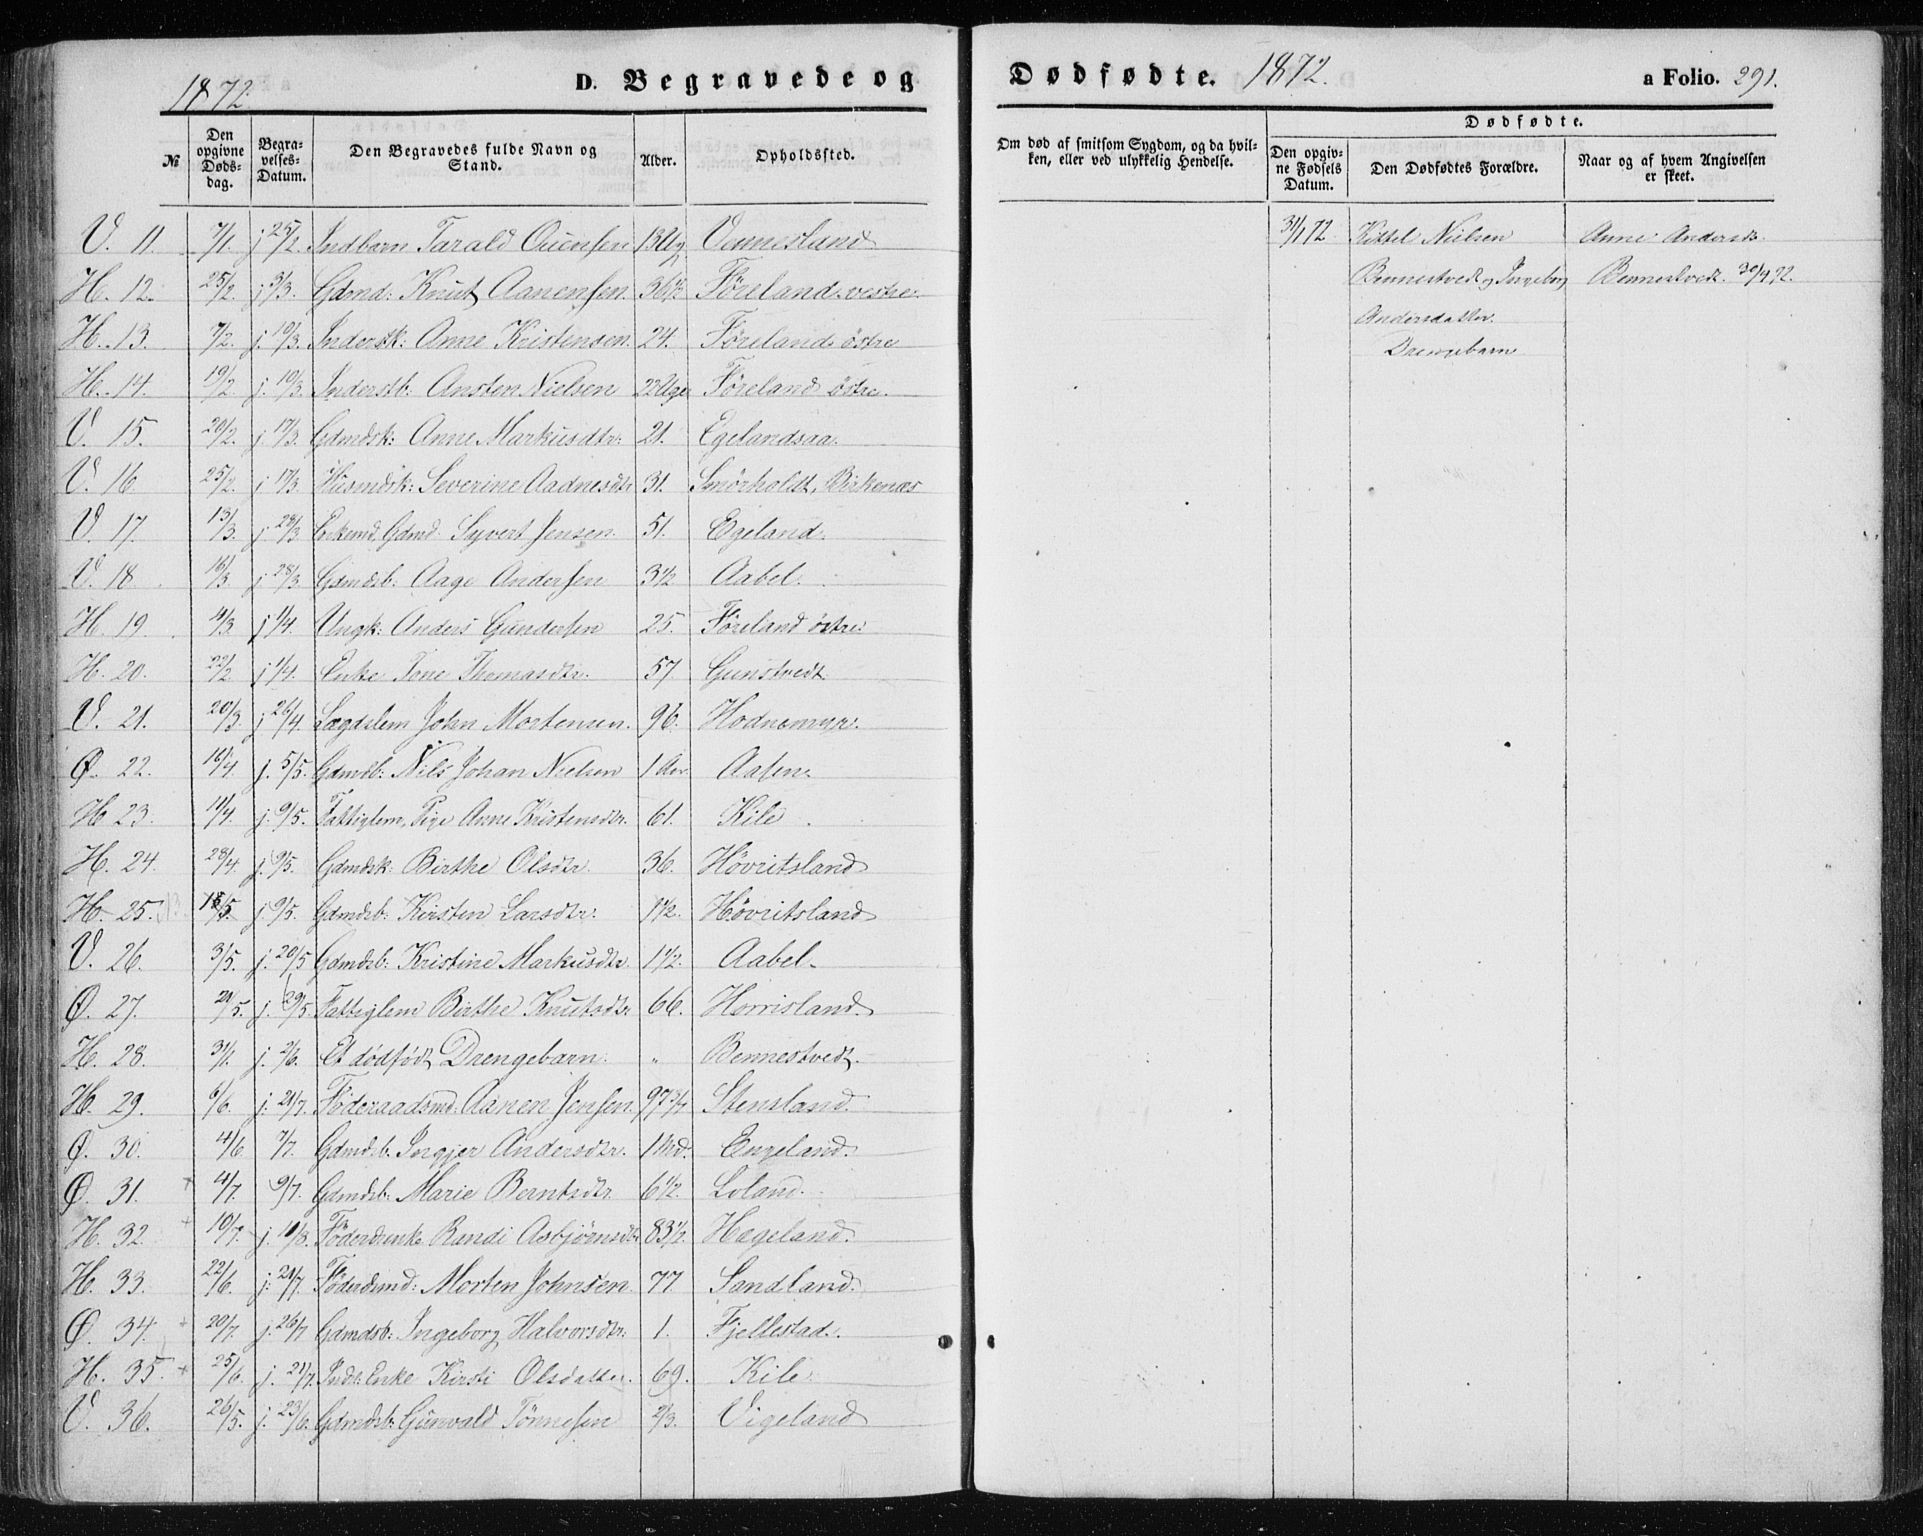 1872.
D. Begravede og
Dødfødte. 1872.
a Folio. 291.
№
Den opgivne Døds-dag.
Begra-velses-Datum.
Den Begravedes fulde Navn og Stand.
Alder.
Opholdssted.
Om død af smitsom Sygdom, og da hvil-ken, eller ved ulykkelig Hendelse.
Dødfødte.
Den opgiv-ne Fødsels Datum.
Den Dødfødtes Forældre.
Naar og af hvem Angivelsen er skeet.
V. 11. 7/1. j 25/2. Indbarn Tarald Ouensen 13 Ug Vennesland
H. 12. 25/2. j 3/3. Gdmd: Knut Aanensen. 36½ Føreland vestre.
H. 13. 7/2. j. 10/3. Indersk: Anne Kristensen. 24. Føreland østre
H. 14. 19/2 j. 10/3. Inderstb: Ansten Nielsen 22 Uger Føreland østre.
V. 15. 20/2. j. 17/3. Gdmdsk: Anne Markusdtr. 21. Egelandsaa.
V. 16. 25/2. j. 17/3. Husmdsk: Severine Aadnesdtr 31. Smörholdt, Birkenæs
V. 17. 13/3. j 28/3. Enkemd. Gdmd. Syvert Jensen. 51. Egeland.
V. 18. 16/3 j 28/3. Gdmdsb: Aage Andersen 3½ Aabel.
H. 19. 4/3. j 1/4. Ungk: Anders Gundersen 25. Føreland østre:
H. 20. 22/2. j 1/4. Enke Tone Thomasdtr. 57. Gunstvedt
V. 21. 20/3. j 26/4. Lægdslem John Mortensen. 96. Hodnemyr.
Ø. 22. 16/4. j. 5/5. Gdmdb: Nils Johan Nielsen 1 Aar. Aasen.
H 23. 11/4. j. 9/5. Fattiglem, Pige Anne Kristensdtr. 61. Kile.
H. 24. 28/4 j. 9/5. Gdmdsk: Birthe Olsdtr. 36. Hövritsland
H. 25. 15/5. j 9/5. Gdmdsb: Kirsten Larsdtr. 1½. Hövritsland
V. 26. 3/5. j. 20/5 Gdmdsb: Kristine Markusdtr. 1½. Aabel.
Ø. 27. 21/5. j. 29/5. Fattiglem Birthe Knutsdtr. 66. Horrisland
H. 28. 31/1. j. 2/6. Et dödfödt Drengebarn. " Bennestvedt.
H. 29. 6/6. j. 21/7. Föderaadsmd: Aanen Jensen. 97¾ Stensland.
Ø. 30. 4/6 7/7. Gdmdsb. Ingjer Andersdtr. 1 Md. Engeland.
Ø. 31. + 4/7. 9/7. Gdmdsb: Marie Berntsdtr 6½. Loland.
H. 32. + 10/7. j. 11/8. Föderdsenke Randi Asbjørnsdtr 83½. Hægeland.
H. 33. 22/6. j: 21/7. Föderdsmd: Morten Johnsen. 77. Sandland.
Ø. 34. + 20/7. j. 26/7 Gdmdsb: Ingeborg Halvorsdtr: 1. Fjellestad.
H. 35. + 25/6. j. 21/7. Indst. Enke Kirsti Olsdatter. 69. Kile.
V. 36. 26/5. j. 23/6. Gdmdsb: Gunvald Tönnesen 2/3. Vigeland
31/1 72. Kittel Nielsen
Bennestvedt og Ingeborg
Andersdatter.
Drengebarn
Anne Andersdr.
Bennestvedt. 30/4 72.